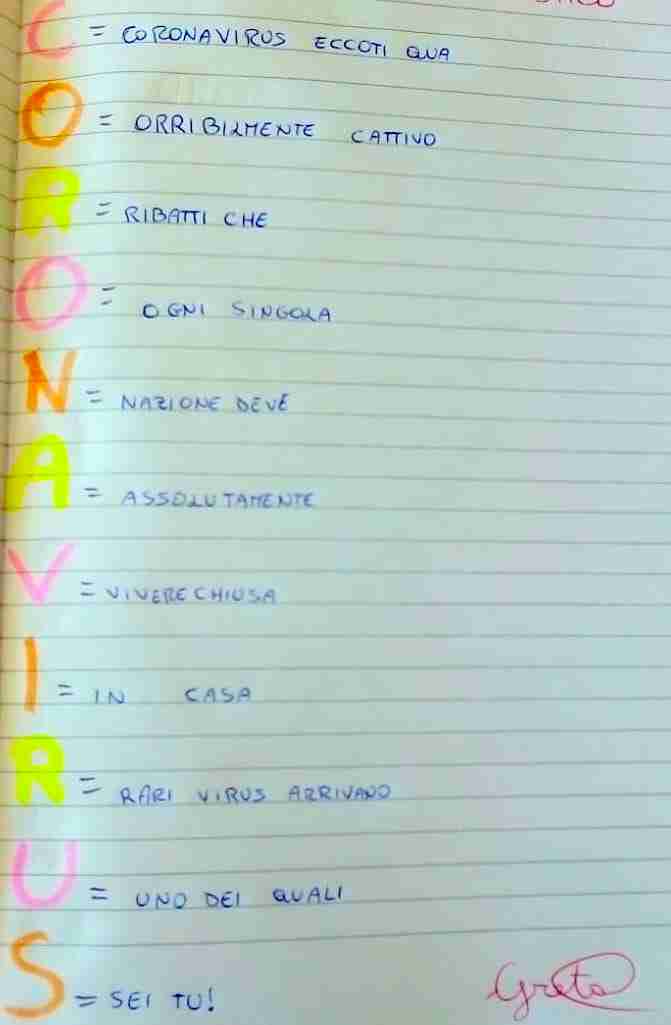 C = CORONAVIRUS ECCOTI QUA
O = ORRIBILMENTE CATTIVO
R = RIBATTI CHE
O = OGNI SINGOLA
N = NAZIONE DEVE
A = ASSOLUTAMENTE
V = VIVERE CHIUSA
I = IN CASA
R = RARI VIRUS ARRIVANO
U = UNO DEI QUALI
S = SEI TU!
Greta